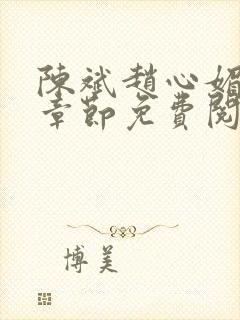 陳斌趙心媚
章節免費閱
博美